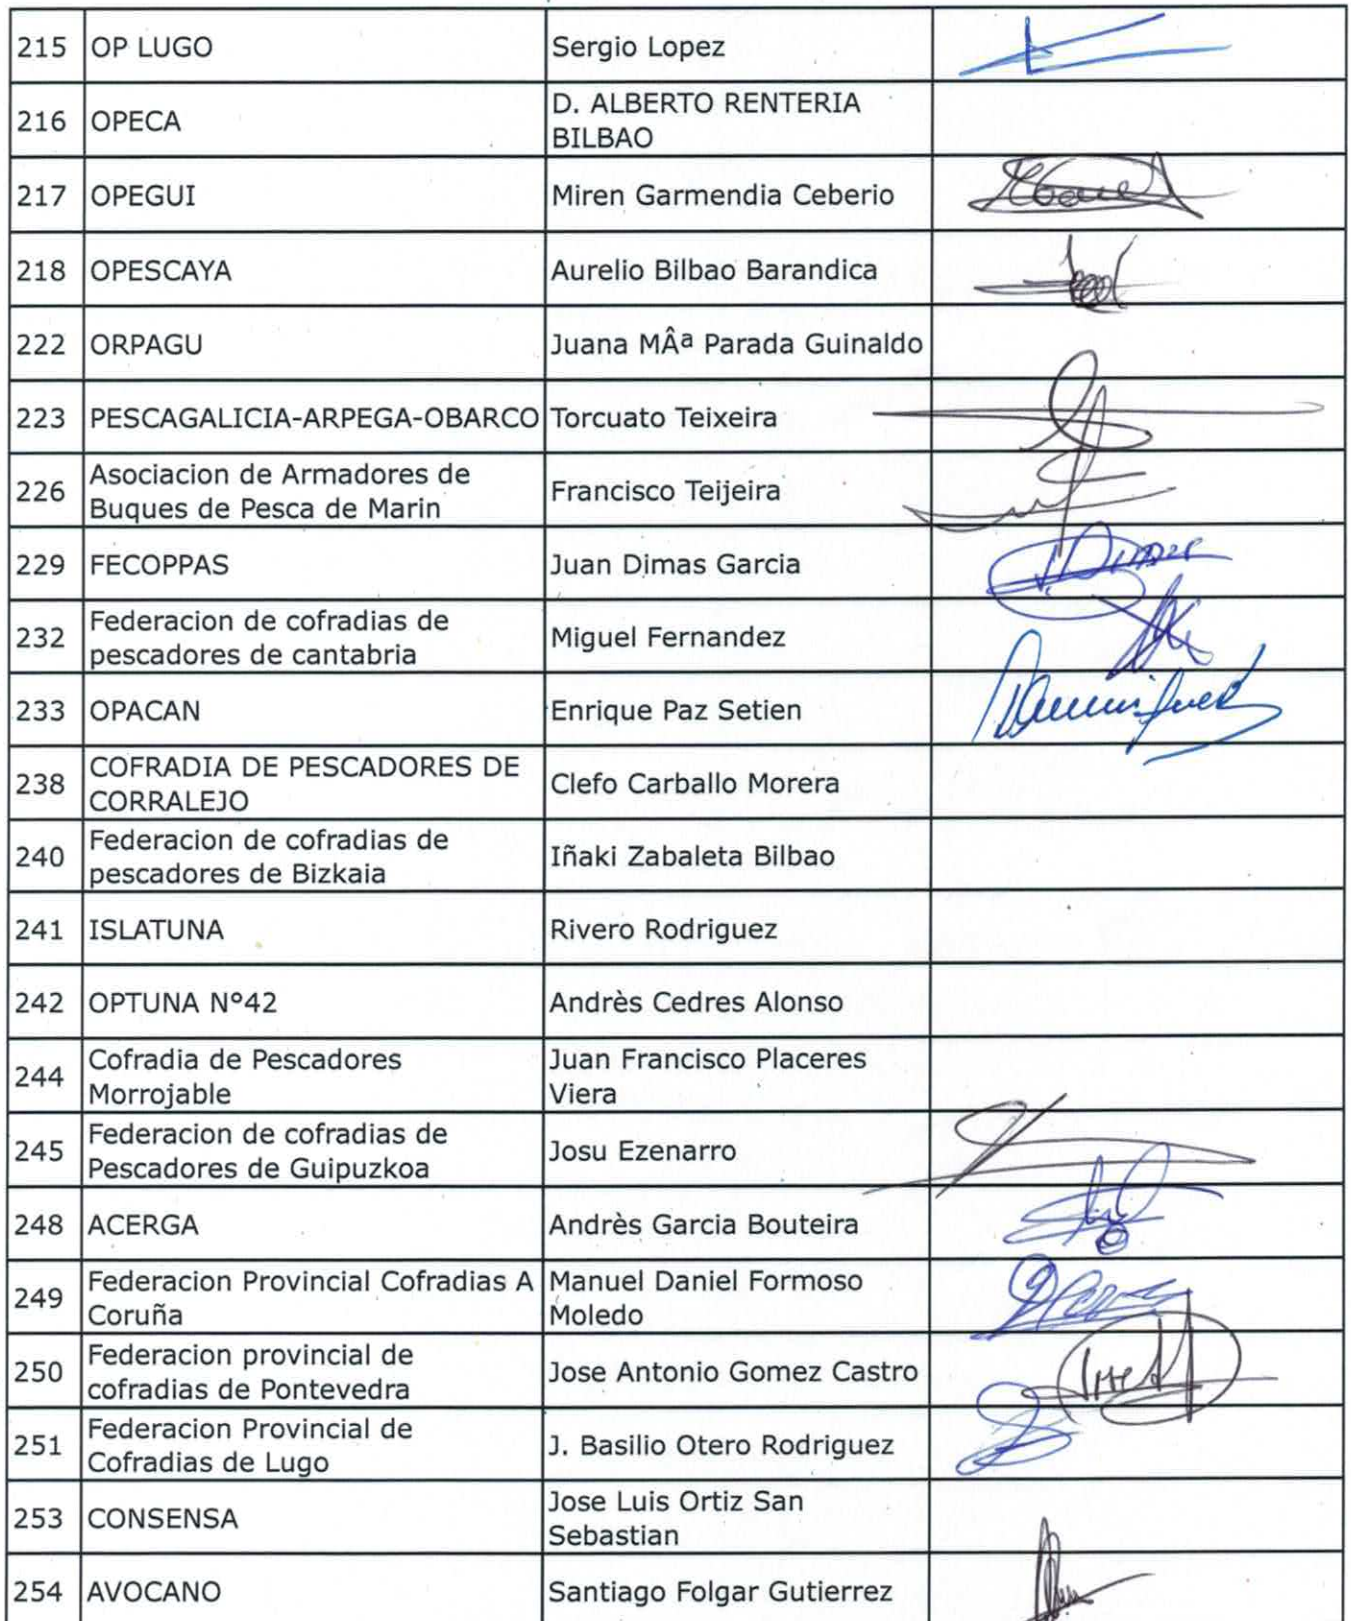 215 OP LUGO Sergio Lopez
216 OPECA D. ALBERTO RENTERIA
BILBAO
217 OPEGUI Miren Garmendia Ceberio
218 OPESCAYA Aurelio Bilbao Barandica
222 ORPAGU Juana MÂª Parada Guinaldo
223 PESCAGALICIA-ARPEGA-OBARCO Torcuato Teixeira
226 Asociacion de Armadores de
Buques de Pesca de Marin Francisco Teijeira
229 FECOPPAS Juan Dimas Garcia
232 Federacion de cofradias de
pescadores de cantabria Miguel Fernandez
233 OPACAN Enrique Paz Setien
238 COFRADIA DE PESCADORES DE
CORRALEJO Clefo Carballo Morera
240 Federacion de cofradias de
pescadores de Bizkaia Iñaki Zabaleta Bilbao
241 ISLATUNA Rivero Rodriguez
242 OPTUNA Nº42 Andrès Cedres Alonso
244 Cofradia de Pescadores Juan Francisco Placeres
Morrojable Viera
245 Federacion de cofradias de
Pescadores de Guipuzkoa Josu Ezenarro
248 ACERGA Andrès Garcia Bouteira
249 Federacion Provincial Cofradias A Manuel Daniel Formoso
Coruña Moledo
250 Federacion provincial de
cofradias de Pontevedra Jose Antonio Gomez Castro
251 Federacion Provincial de
Cofradias de Lugo J. Basilio Otero Rodriguez
253 CONSENSA Jose Luis Ortiz San
Sebastian
254 AVOCANO Santiago Folgar Gutierrez